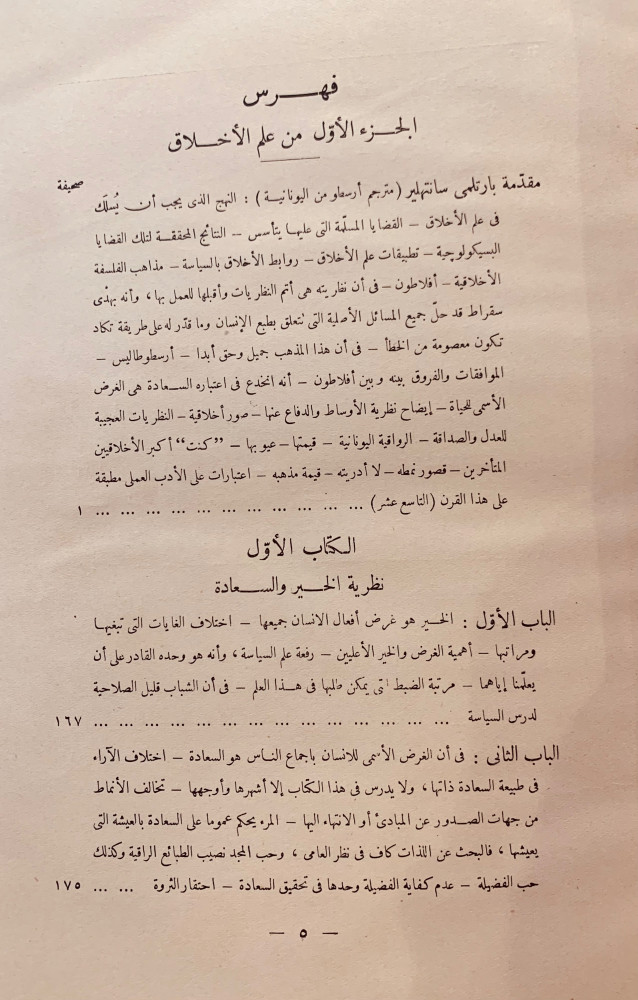 فهرس
الجزء الأوّل من علم الأخلاق
صحيفة
مقدّمة بارتلمى سانتهلير (مترجم أرسطو من اليونانية) : النهج الذى يجب أن يُسلك
فى علم الأخلاق – القضايا المسلّمة التى عليها يتأسس – النتائج المحققة لتلك القضايا
البسيكولوجية – تطبيقات علم الأخلاق – روابط الأخلاق بالسياسة – مذاهب الفلسفة
الأخلاقية – أفلاطون – فى أن نظريته هى أتم النظريات وأقبلها للعمل بها ، وأنه بهدْى
سقراط قد حلّ جميع المسائل الأصلية التى تتعلق بطبع الإنسان وما قدّر له على طريقة تكاد
تكون معصومة من الخطأ – فى أن هذا المذهب جميل وحق أبدا – أرسطوطاليس –
الموافقات والفروق بينه وبين أفلاطون – أنه انخدع فى اعتباره السعادة هى الغرض
الأسمى للحياة – إيضاح نظرية الأوساط والدفاع عنها – صور أخلاقية – النظريات العجيبة
للعدل والصداقة – الرواقية اليونانية – قيمتها – عيوبها – ”كنت“ أكبر الأخلاقيين
المتأخرين – قصور نمطه – لا أدريته – قيمة مذهبه – اعتبارات على الأدب العملى مطبقة
على هذا القرن (التاسع عشر) ... ... ... ... ... ... ... ... ... ... ... ١
الكتاب الأوّل
نظرية الخير والسعادة
الباب الأوّل : الخير هو غرض أفعال الانسان جميعها – اختلاف الغايات التى تبغيها
ومراتبها – أهمية الغرض والخير الأعليين – رفعة علم السياسة ، وأنه هو وحده القادر على أن
يعلّمنا إياهما – مرتبة الضبط التى يمكن طلبها فى هذا العلم – فى أن الشباب قليل الصلاحية
لدرس السياسة ... ... ... ... ... ... ... ... ... ... ... ... ... ... ١٦٧
الباب الثانى : فى أن الغرض الأسمى للانسان باجماع الناس هو السعادة – اختلاف الآراء
فى طبيعة السعادة ذاتها ، ولا يدرس فى هذا الكتاب إلا أشهرها وأوجهها – تخالف الأنماط
من جهات الصدور عن المبادئ أو الانتهاء اليها – المرء يحكم عموما على السعادة بالعيشة التى
يعيشها ، فالبحث عن اللذات كاف فى نظر العامى ، وحب المجد نصيب الطبائع الراقية وكذلك
حب الفضيلة – عدم كفاية الفضيلة وحدها فى تحقيق السعادة – احتقار الثروة ... ... ١٧٥
– ٥ –